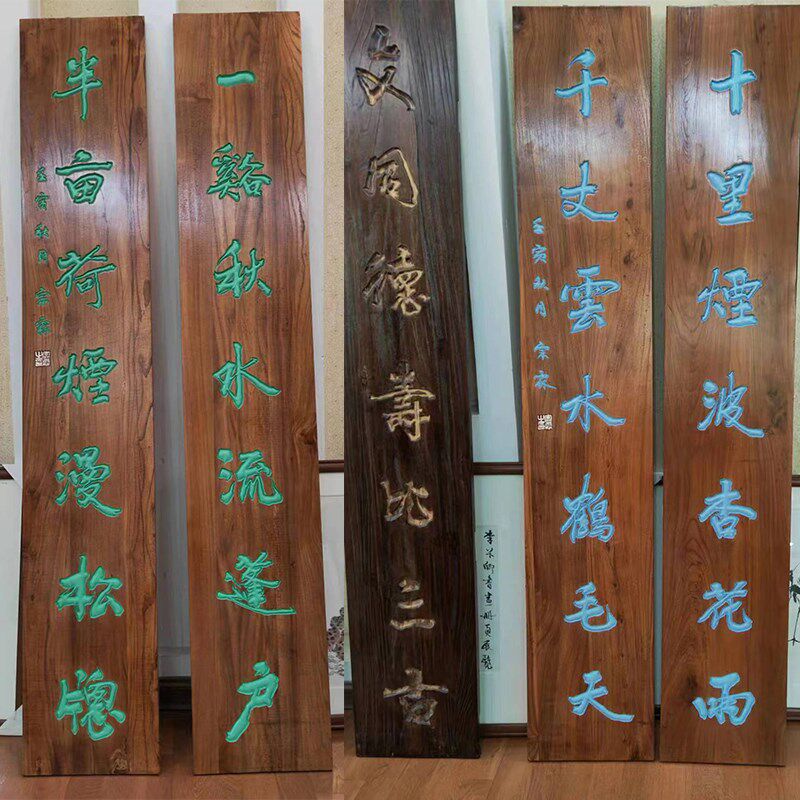 十里煙波杏花雨
千丈雲水鶴毛天
壬寅秋月
同德壽比三古
一谿秋水流蓬户
半亩荷煙漫松牕
壬寅秋月